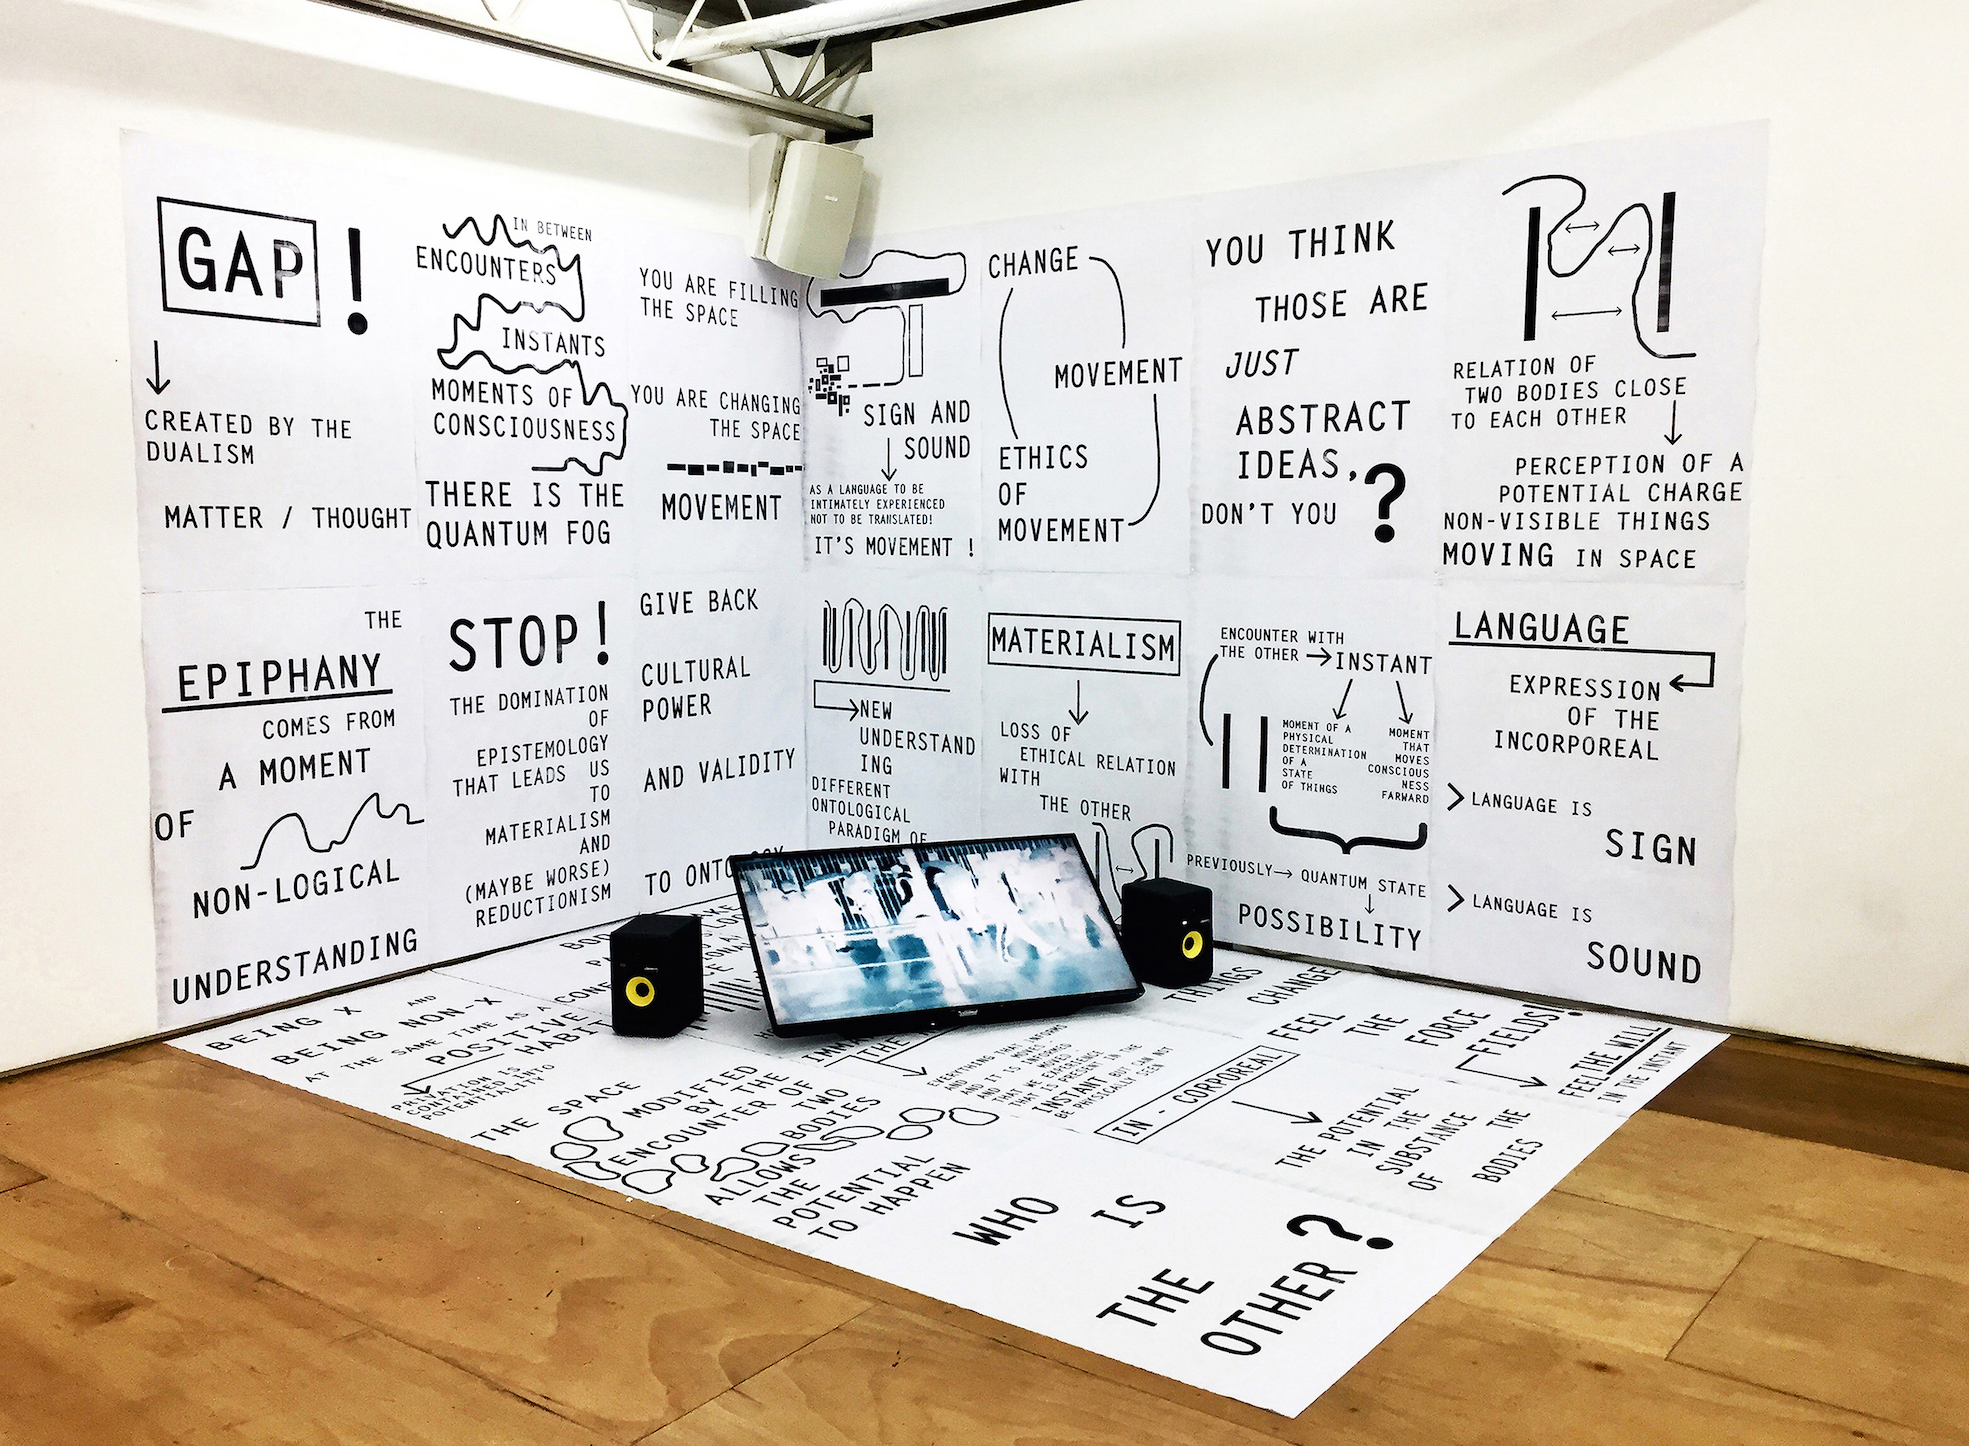 GAP!
CREATED BY THE
DUALISM
MATTER / THOUGHT
IN BETWEEN
ENCOUNTERS
INSTANTS
MOMENTS OF
CONSCIOUSNESS
THERE IS THE
QUANTUM FOG
YOU ARE FILLING
THE SPACE
YOU ARE CHANGING
THE SPACE
MOVEMENT
SIGN AND
SOUND
AS A LANGUAGE TO BE
INTIMATELY EXPERIENCED
NOT TO BE TRANSLATED!
IT'S MOVEMENT !
CHANGE
MOVEMENT
ETHICS
OF
MOVEMENT
YOU THINK
THOSE ARE
JUST
ABSTRACT
IDEAS,
DON'T YOU ?
RELATION OF
TWO BODIES CLOSE
TO EACH OTHER
PERCEPTION OF A
POTENTIAL CHARGE
NON-VISIBLE THINGS
MOVING IN SPACE
THE
EPIPHANY
COMES FROM
A MOMENT
OF
NON-LOGICAL
UNDERSTANDING
STOP!
THE DOMINATION
OF
EPISTEMOLOGY
THAT LEADS US
TO
MATERIALISM
AND
(MAYBE WORSE)
REDUCTIONISM
GIVE BACK
CULTURAL
POWER
AND VALIDITY
TO
NEW
UNDERSTAND
ING
DIFFERENT
ONTOLOGICAL
PARADIGM OF
MATERIALISM
LOSS OF
ETHICAL RELATION
WITH
THE OTHER
ENCOUNTER WITH
THE OTHER → INSTANT
MOMENT OF A
PHYSICAL
DETERMINATION
OF A
STATE
OF THINGS
MOMENT
THAT
MOVES
CONSCIOUS
NESS
FARWARD
PREVIOUSLY → QUANTUM STATE
POSSIBILITY
LANGUAGE
EXPRESSION
OF THE
INCORPOREAL
> LANGUAGE IS
SIGN
> LANGUAGE IS
SOUND
BEING X
AND
BEING NON-X
AT THE SAME TIME AS A
POSITIVE
HABIT
PRIVATION IS
CONTAINED INTO
POTENTIALITY
THE SPACE
MODIFIED
BY THE
ENCOUNTER OF
TWO
BODIES
ALLOWS
THE
POTENTIAL
TO HAPPEN
THE
EVERYTHING THAT INFORMS
AND MOVES
AND IT IS INFORMED
AND MOVES
THAT WE EXPERIENCE
THAT IS PRESENT IN THE
INSTANT BUT CAN NOT
BE PHYSICALLY SEEN
IN - CORPOREAL
THINGS
CHANGE
FEEL
THE
FORCE
FIELDS!
THE POTENTIAL
IN THE
SUBSTANCE
OF THE
BODIES
FEEL THE WILL
IN THE INSTANT
WHO IS
THE
OTHER?